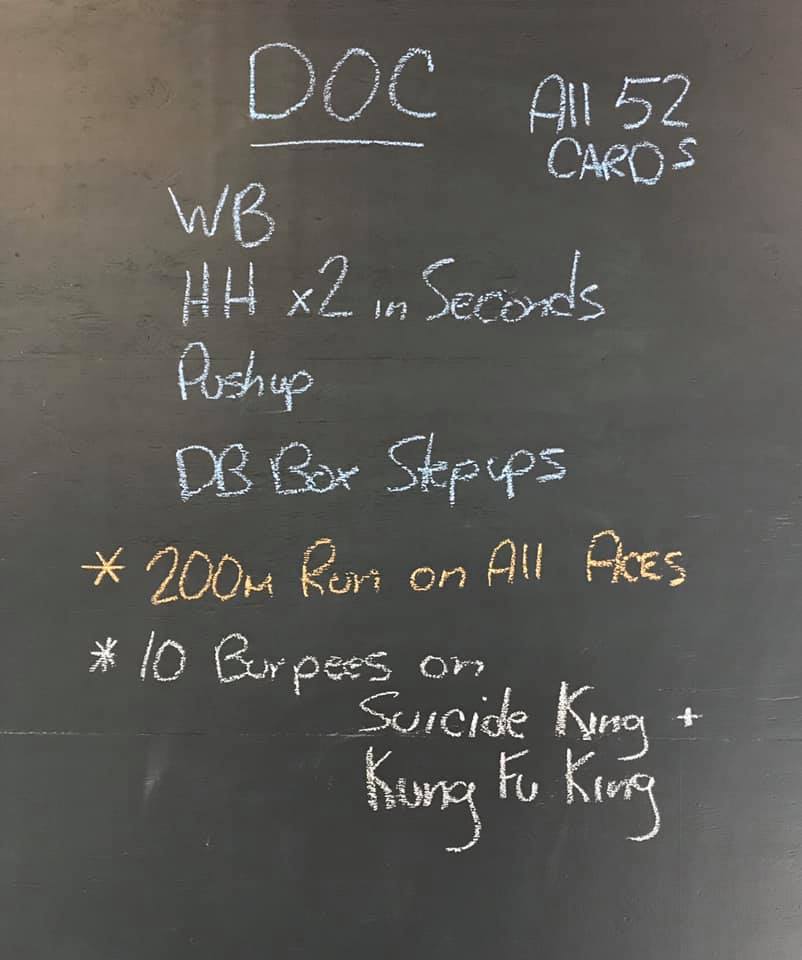 DOC
All 52
CARDS
WB
HH x2 in Seconds
Pushup
DB Box Stepups
* 200M Run on All ACES
* 10 Burpees on
Suicide King +
Kung Fu King